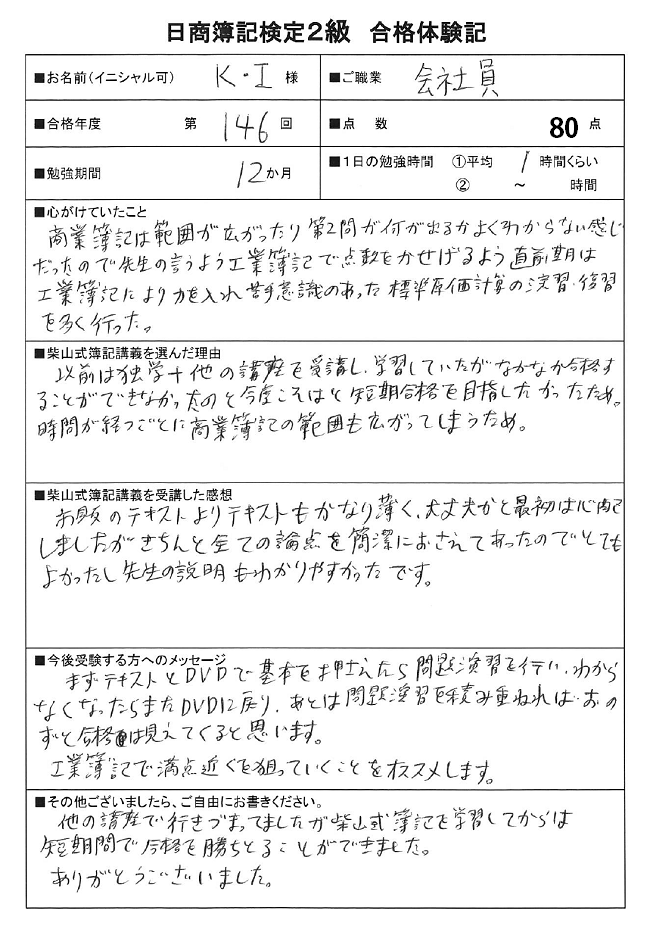 日商簿記検定2級 合格体験記
■お名前(イニシャル可) K・I 様 ■ご職業 会社員
■合格年度 第 146 回 ■点 数 80 点
■勉強期間 12か月 ■1日の勉強時間 ①平均 1 時間くらい
② ～ 時間
■心がけていたこと
商業簿記は範囲が広がったり第2問が何が出るかよくわからない感じ
だったので先生の言うよう工業簿記で点数をかせげるよう直前期は
工業簿記により力を入れ苦手意識のあった標準原価計算の演習・復習
を多く行った。
■柴山式簿記講義を選んだ理由
以前は独学+他の講座を受講し、学習していたがなかなか合格す
ることができなかったのと今度こそはと短期合格を目指したかったため。
時間が経つごとに商業簿記の範囲も広がってしまうため。
■柴山式簿記講義を受講した感想
市販のテキストよりテキストもかなり薄く、大丈夫かと最初は心配
しましたがきちんと全ての論点を簡潔におさえてあったのでとても
よかったし先生の説明もわかりやすかったです。
■今後受験する方へのメッセージ
まずテキストとDVDで基本を押さえたら問題演習を行い、わから
なくなったらまたDVDに戻り、あとは問題演習を積み重ねれば、おの
ずと合格は見えてくると思います。
工業簿記で満点近くを狙っていくことをオススメします。
■その他ございましたら、ご自由にお書きください。
他の講座で行きづまってましたが柴山式簿記を学習してからは
短期間で合格を勝ちとることができました。
ありがとうございました。